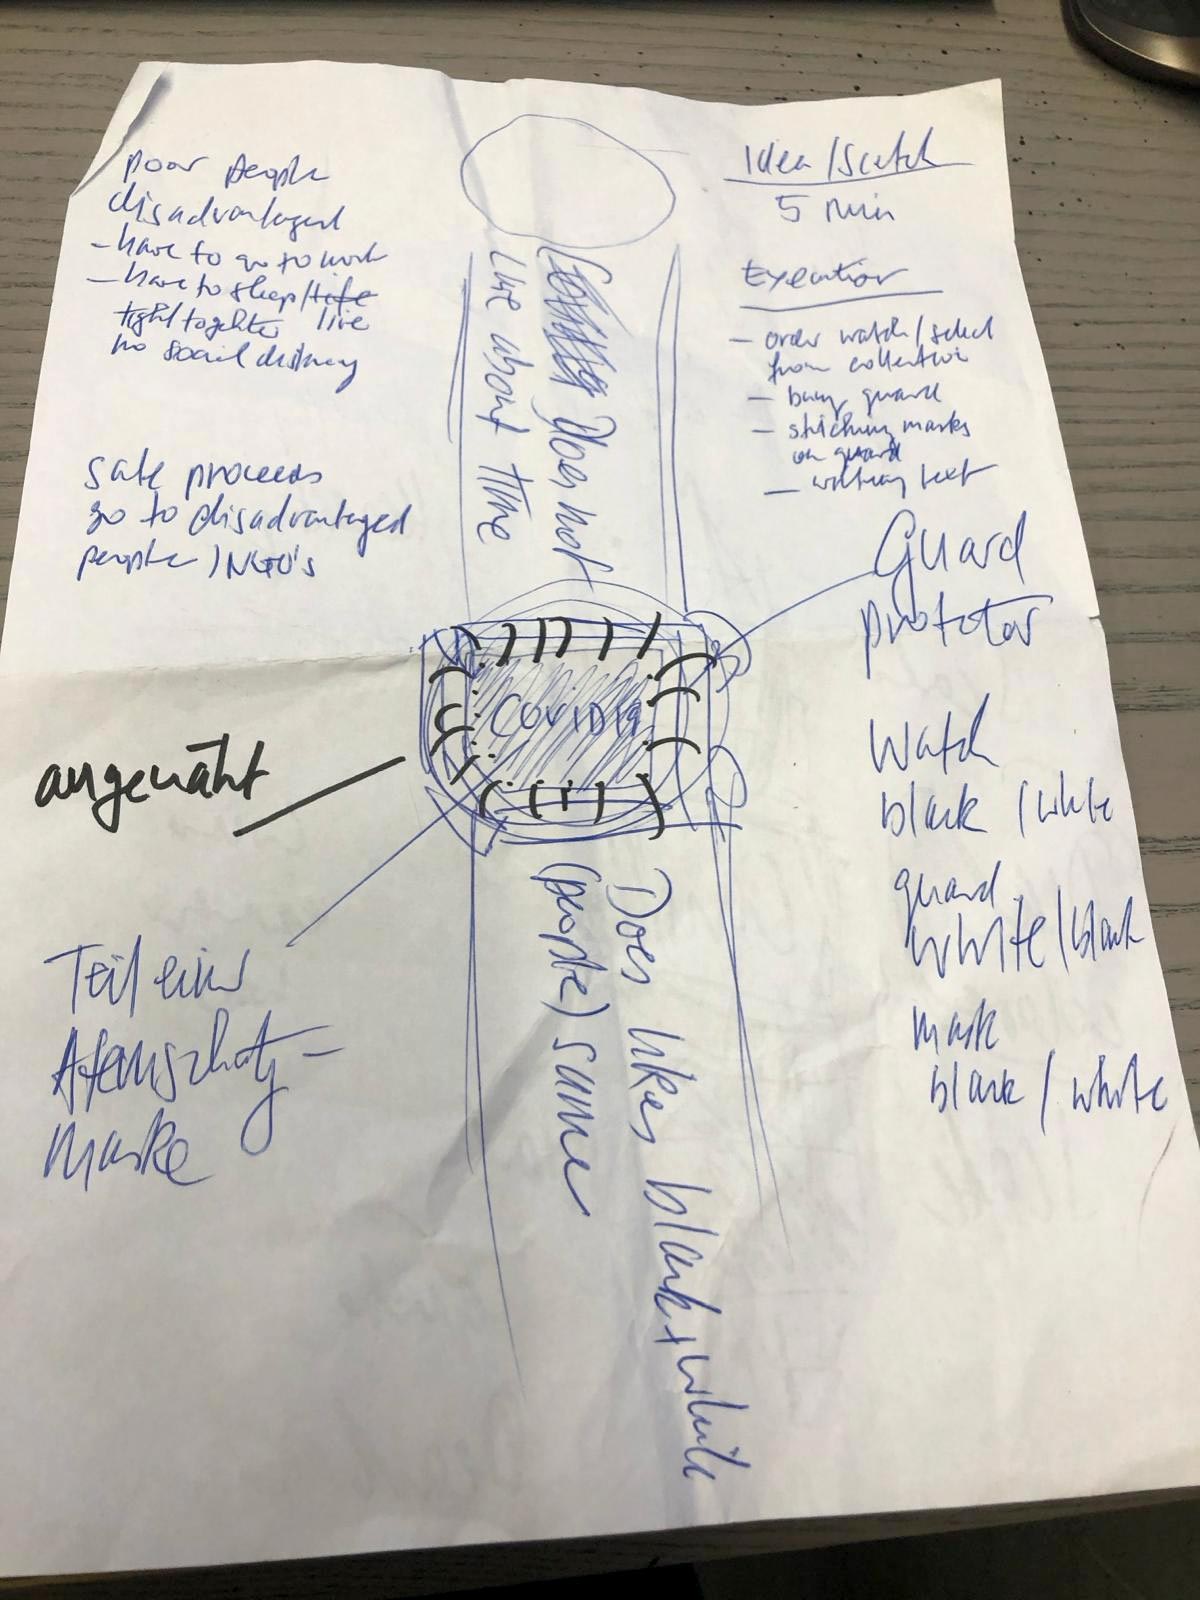 poor people
disadvantaged
- have to go to work
- have to sleep/life
tight togehter live
no social distancy
Sale proceeds
go to disadvantaged
people/NGO's
Idea/Scetch
5 min
Execution
- order watch/select
from collection
- buy guard
- stiching marks
on guard
- writing text
Does not
like about time
Guard
protetor
COVID19
angenäht
Watch
black/white
guard
white/black
mask
black/white
Teil einer
Atemschutz-
maske
Does likes black+white
(people) same